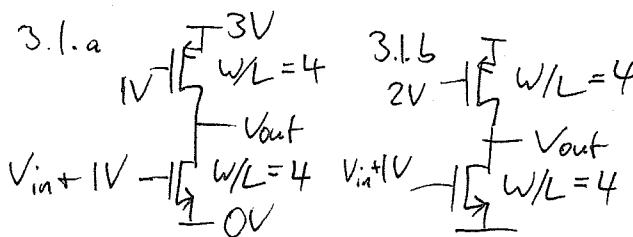 3.1.a
3V
1V
W/L = 4
Vout
Vin + 1V
W/L = 4
0V
3.1.b
2V
W/L = 4
Vout
Vin+1V
W/L = 4